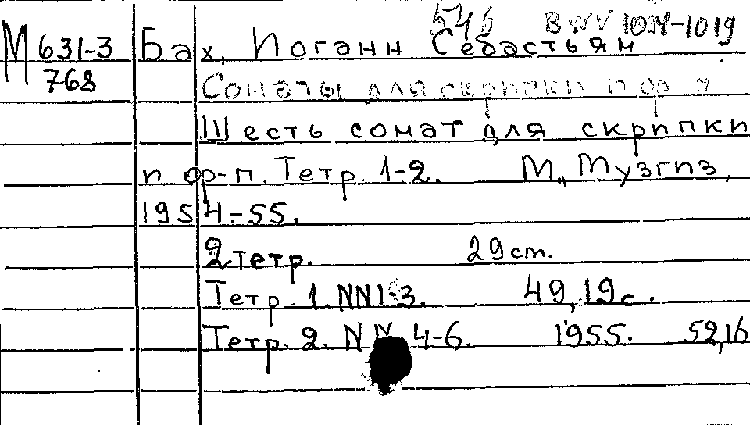 545 BWV 1014-1019
М 631-3 Бах, Иоганн Себастьян
768 Сонаты для скрипки и ф-п
Шесть сонат для скрипки
и ф-п. Тетр. 1-2. М., Музгиз,
1954-55.
2 тетр. 29 см.
Тетр. 1. NN1-3. 49, 19 с.
Тетр. 2. NN 4-6. 1955. 52, 16